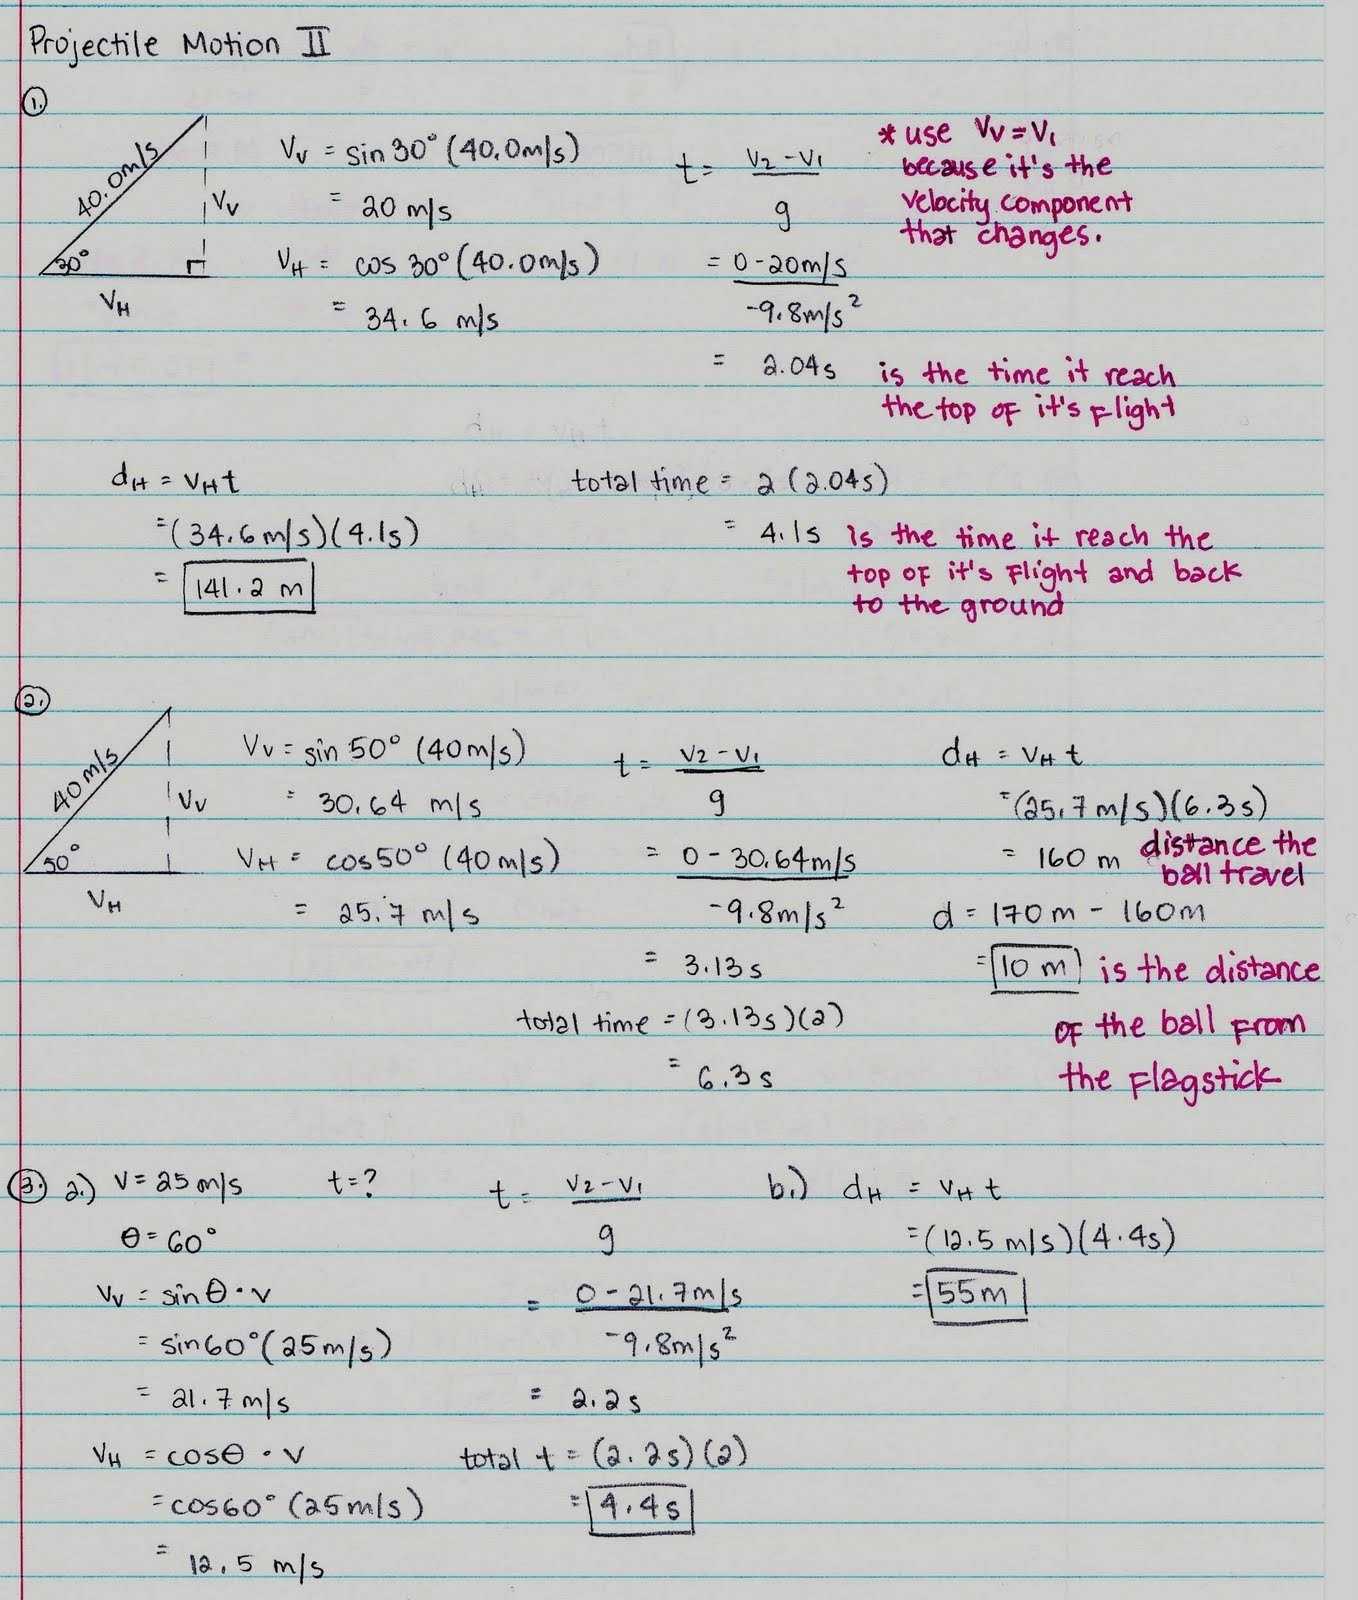 Projectile Motion II
1.
40.0m/s
30°
Vv
VH
Vv = sin 30° (40.0m/s)
= 20 m/s
VH = cos 30° (40.0m/s)
= 34.6 m/s
t = V2 - V1
g
= 0 - 20m/s
-9.8m/s²
= 2.04s is the time it reach
the top of it's flight
* use Vv = V1
because it's the
velocity component
that changes.
dH = VH t
= (34.6m/s)(4.1s)
= 141.2 m
total time = 2 (2.04s)
= 4.1s is the time it reach the
top of it's flight and back
to the ground
2.
40 m/s
50°
Vv
VH
Vv = sin 50° (40m/s)
= 30.64 m/s
VH = cos 50° (40 m/s)
= 25.7 m/s
t = V2 - V1
g
= 0 - 30.64m/s
-9.8m/s²
= 3.13s
total time = (3.13s)(2)
= 6.3s
dH = VH t
= (25.7 m/s)(6.3s)
= 160 m distance the
ball travel
d = 170m - 160m
= 10 m is the distance
of the ball from
the flagstick
3. a.) V = 25 m/s t = ?
θ = 60°
Vv = sin θ · v
= sin 60° (25 m/s)
= 21.7 m/s
VH = cos θ · v
= cos 60° (25m/s)
= 12.5 m/s
t = V2 - V1
g
= 0 - 21.7m/s
-9.8m/s²
= 2.2s
total t = (2.2s)(2)
= 4.4s
b.) dH = VH t
= (12.5 m/s)(4.4s)
= 55m